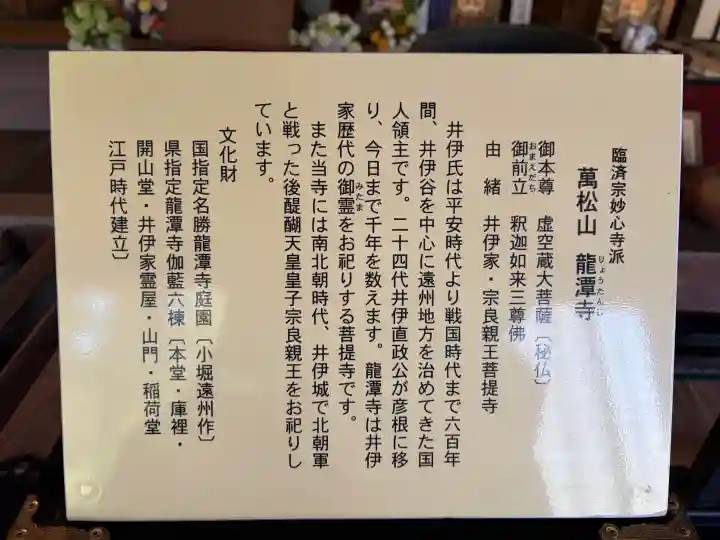 臨済宗妙心寺派
萬松山 龍潭寺
りょうたんじ
御本尊 虚空蔵大菩薩〔秘仏〕
御前立 釈迦如来三尊佛
おまえだち
由緒 井伊家・宗良親王菩提寺
井伊氏は平安時代より戦国時代まで六百年
間、井伊谷を中心に遠州地方を治めてきた国
人領主です。二十四代井伊直政公が彦根に移
り、今日まで千年を数えます。龍潭寺は井伊
家歴代の御霊をお祀りする菩提寺です。
みたま
また当寺には南北朝時代、井伊城で北朝軍
と戦った後醍醐天皇皇子宗良親王をお祀りし
ています。
文化財
国指定名勝龍潭寺庭園〔小堀遠州作〕
県指定龍潭寺伽藍六棟〔本堂・庫裡・
開山堂・井伊家霊屋・山門・稲荷堂
江戸時代建立〕